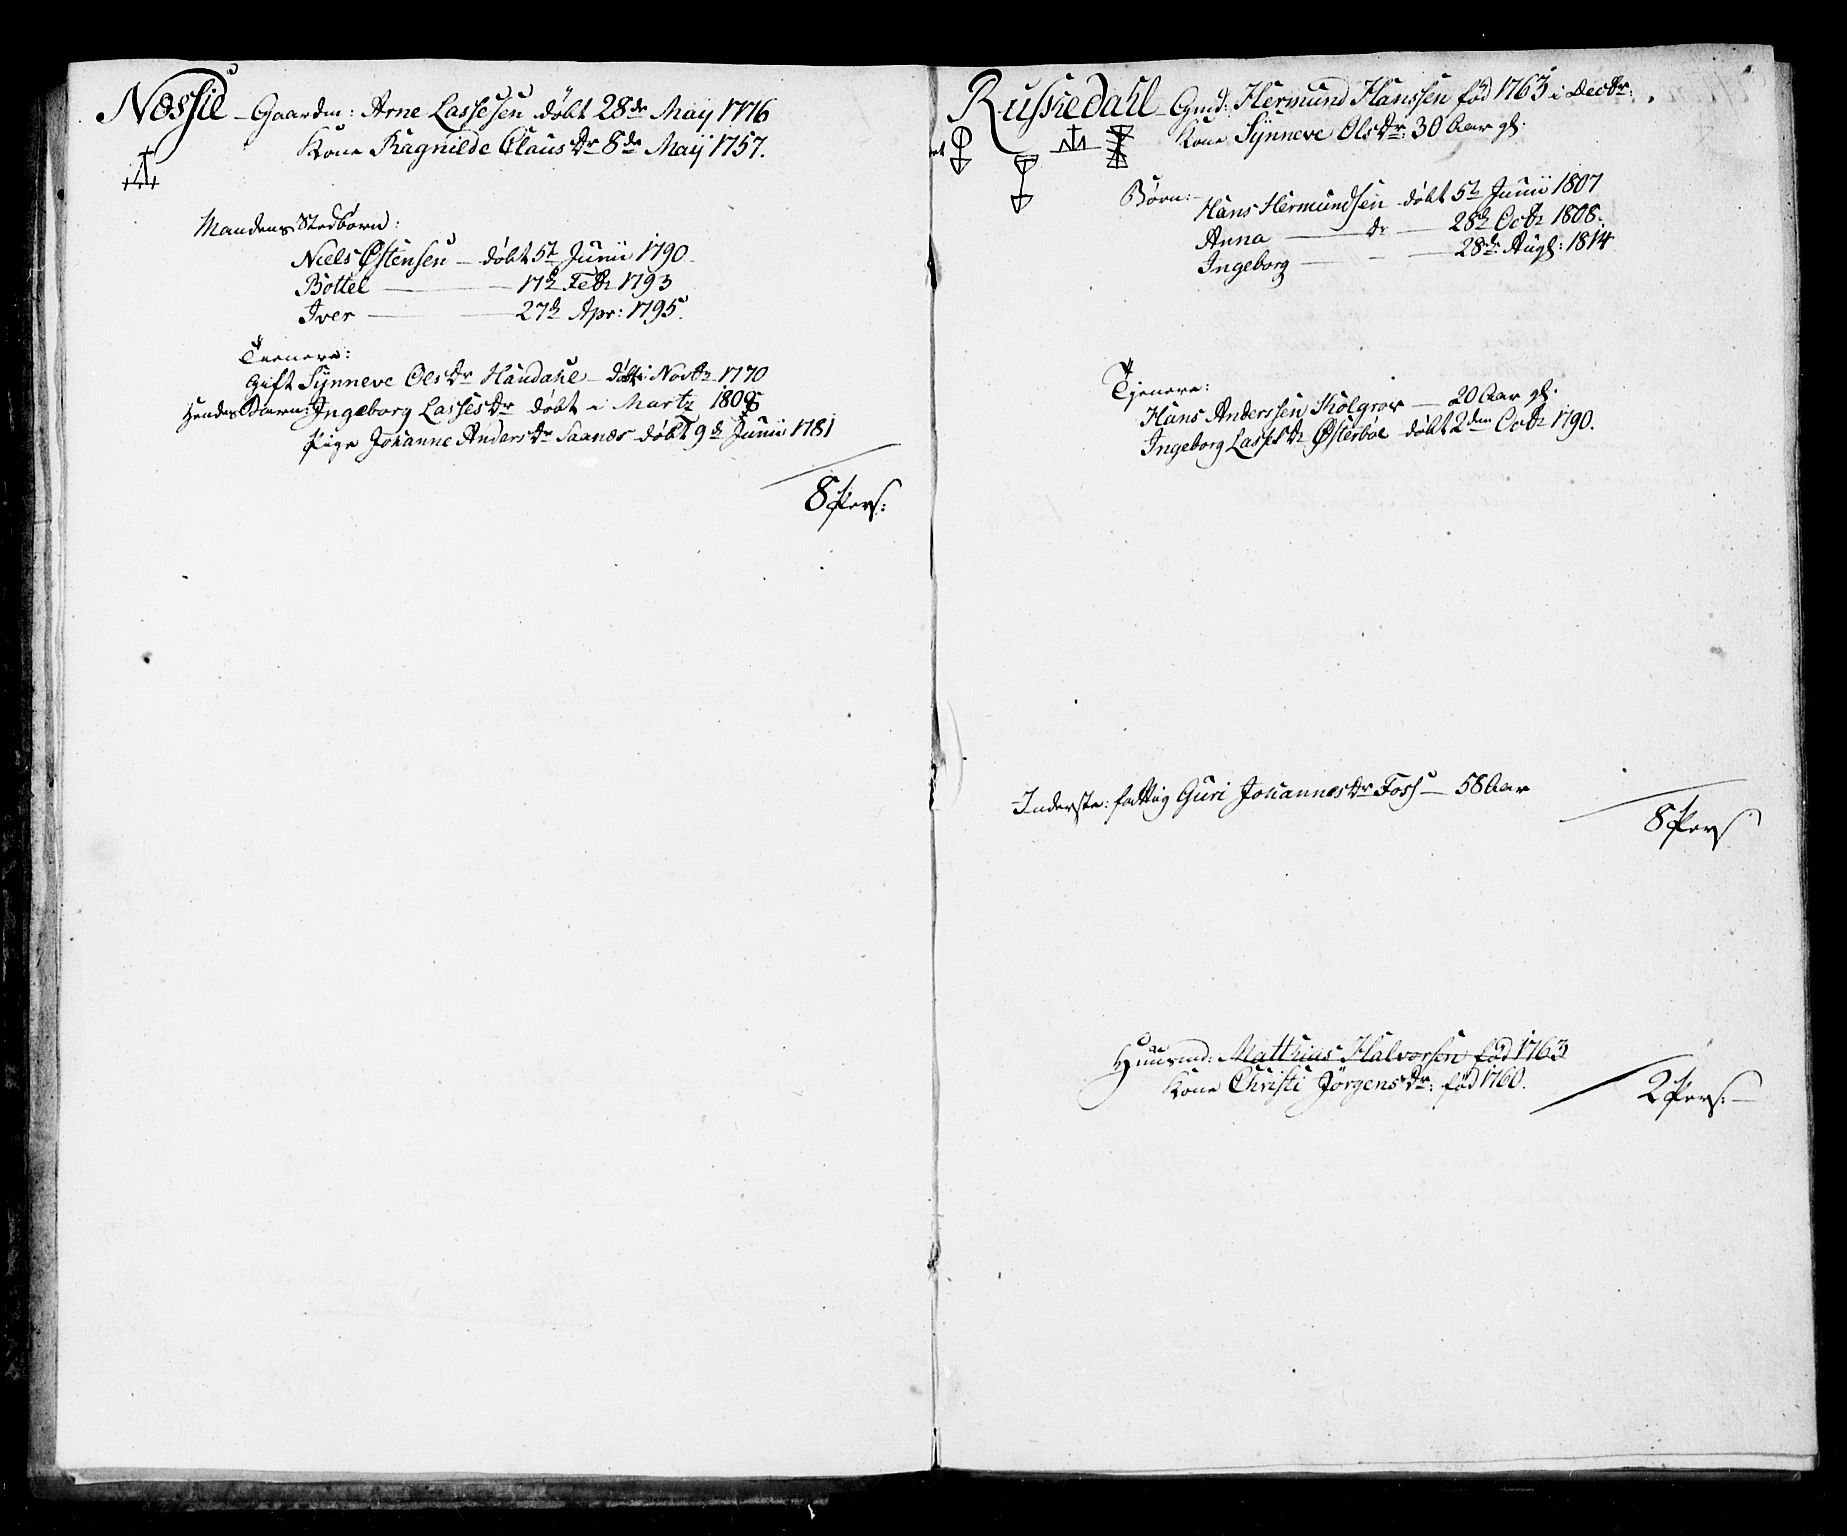 Næssie – Gaardm: Arne Lassesen døbt 28de Maÿ 1776
Kone Ragnilde Clausdr 8de Maÿ 1757.
Mandens Stedbørn:
Niels Østensen – døbt 5t Junii 1790
Bottel — 17d Febr 1793
Iver — 27d Apr: 1795.
Tienere:
gift Sÿnneve Olsdr Haudahl – døbt i Novbr 1770
Hendes Barn: Ingeborg Lassesdr døbt i Martz 1808
Pige Johanne Andersdr Saanes døbt 9d Junii 1781
8 Pers:
Russiedahl – Gmd: Hermund Hanssen fød 1763 i Decbr:
Kone Sÿnneve Olsdr: 30 Aar gl:
Børn:
Hans Hermundsen døbt 5t Junii 1807
Anna — dr — 28d Octbr 1808.
Ingeborg — 28de Augs: 1814
Tjenere:
Hans Anderssen Kolgrov — 20 Aar gl:
Ingeborg Lassesdr Østerboe døbt 2den Octbr 1790.
Inderste: fattig Guri Johannesdr Foss — 58 Aar
8 Pers
Huusmd: Matthias Halvorsen fød 1763
Kone Christi Jørgensdr: fød 1760.
2 Pers: —